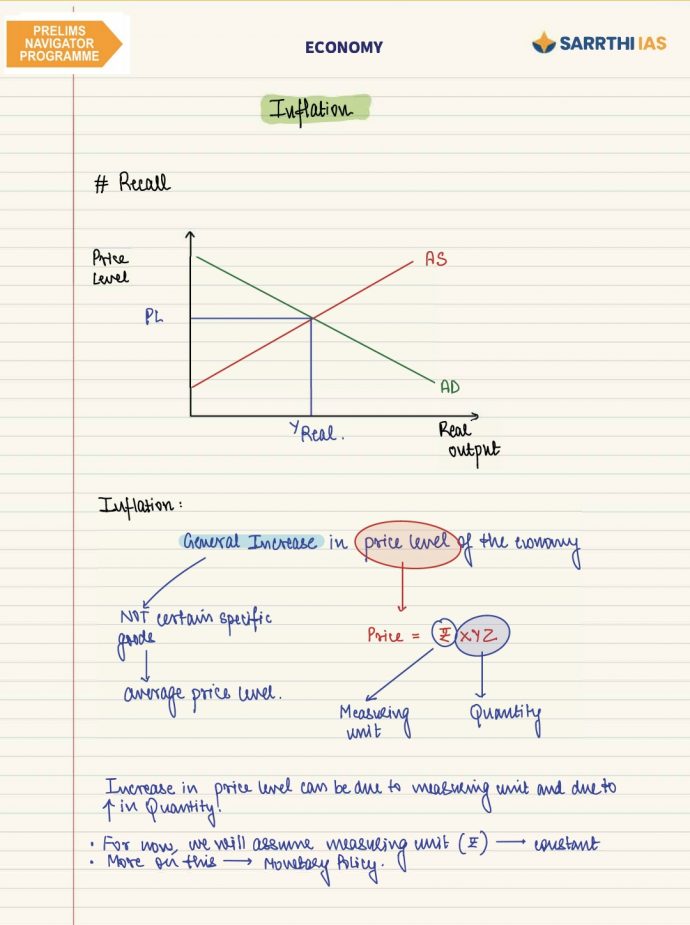 PRELIMS
NAVIGATOR
PROGRAMME
ECONOMY
SARRTHI IAS
Inflation
# Recall
Price
Level
AS
PL
AD
Y Real.
Real
output
Inflation:
General Increase in price level of the economy
NOT certain specific
goods
Price = ₹ XYZ
average price level.
Measuring
unit
Quantity
Increase in price level can be due to measuring unit and due to
↑ in Quantity!
• For now, we will assume measuring unit (₹) → constant
• More on this → Monetary Policy.